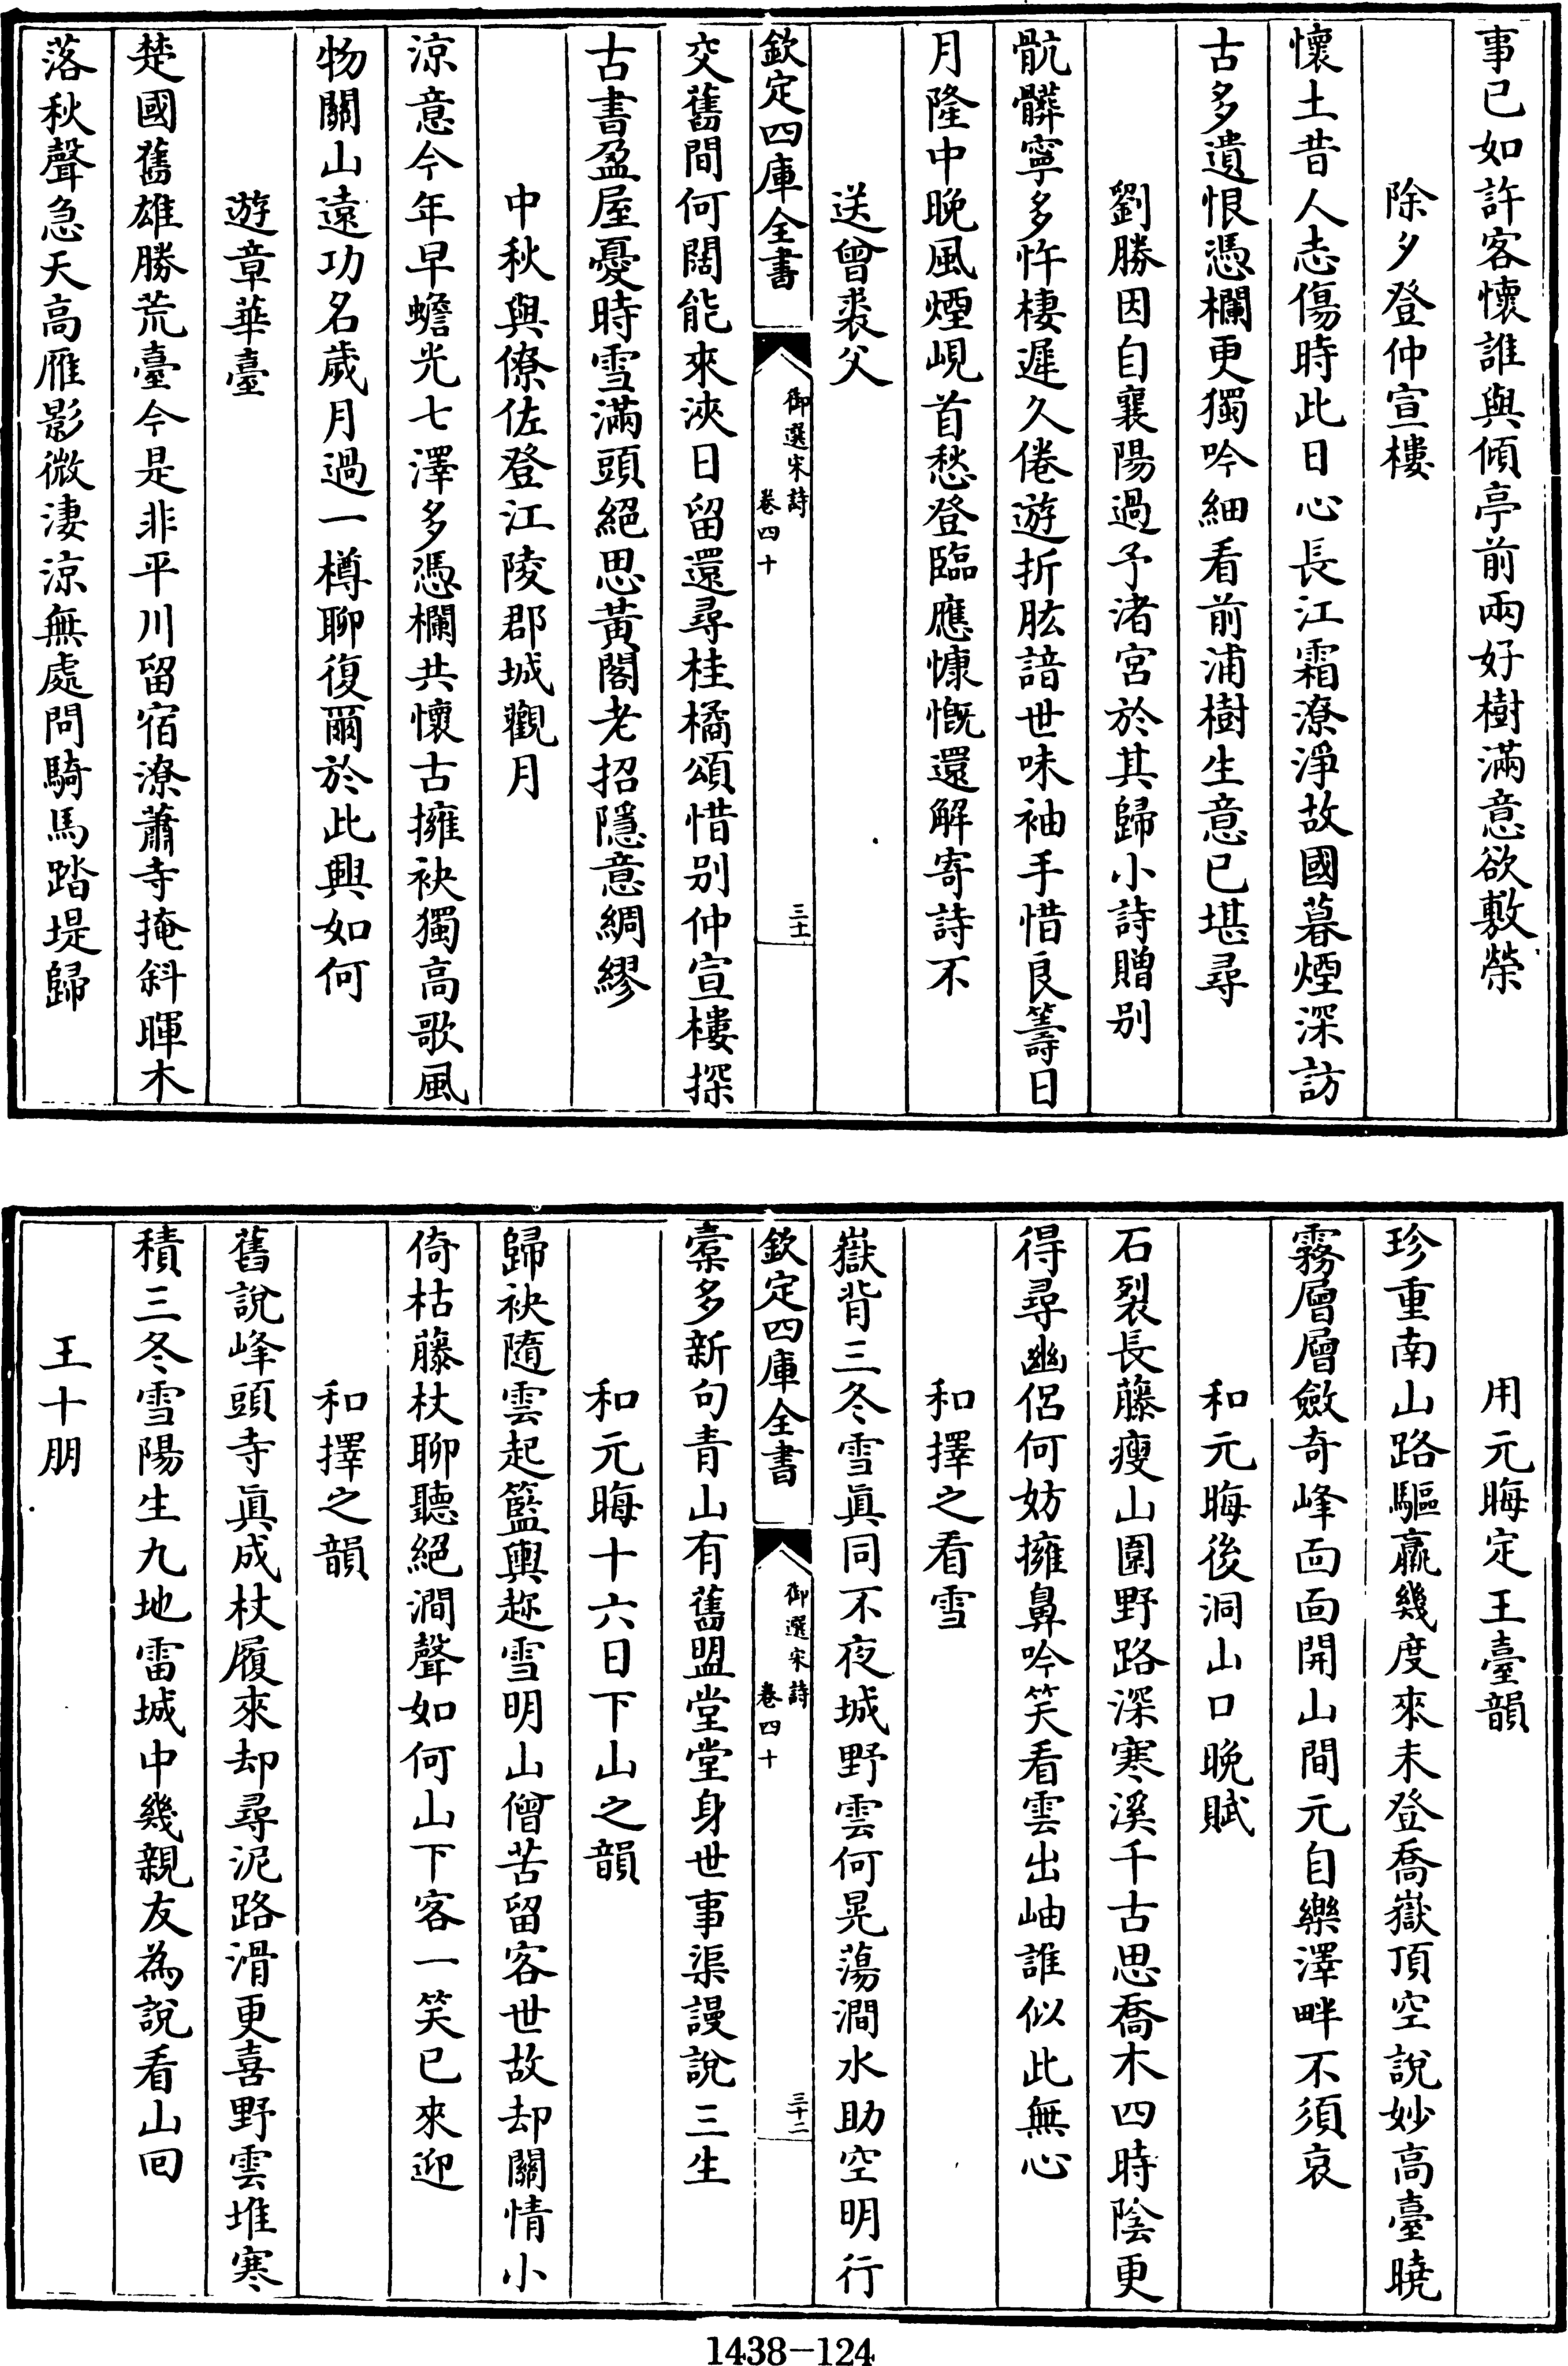 事已如許客懷誰與傾亭前兩好樹滿意欲敷榮
除夕登仲宣樓
懷土昔人志傷時此日心長江霜潦淨故國暮煙深訪
古多遺恨憑欄更獨吟細看前浦樹生意已堪尋
劉勝因自襄陽過予渚宮於其歸小詩贈别
骯髒寧多忤棲遲久倦遊折肱諳世味袖手惜良籌日
月隆中晚風煙峴首愁登臨應慷慨還解寄詩不
送曾裘父
欽定四庫全書
御選宋詩
卷四十
三十一
交舊間何闊能來浹日留還尋桂橘頌惜别仲宣樓探
古書盈屋憂時雪滿頭絕思黃閣老招隱意綢繆
中秋與僚佐登江陵郡城觀月
涼意今年早蟾光七澤多憑欄共懷古擁袂獨高歌風
物關山遠功名歲月過一樽聊復爾於此興如何
遊章華臺
楚國舊雄勝荒臺今是非平川留宿潦蕭寺掩斜暉木
落秋聲急天高雁影微淒涼無處問騎馬踏堤歸
用元晦定王臺韻
珍重南山路驅羸幾度來未登喬嶽頂空說妙高臺曉
霧層層斂奇峰面面開山間元自樂澤畔不須哀
和元晦後洞山口晚賦
石裂長藤瘦山圍野路深寒溪千古思喬木四時陰更
得尋幽侶何妨擁鼻吟笑看雲出岫誰似此無心
和擇之看雪
嶽背三冬雪真同不夜城野雲何晃蕩澗水助空明行
欽定四庫全書
御選宋詩
卷四十
三十二
橐多新句青山有舊盟堂堂身世事渠謾說三生
和元晦十六日下山之韻
歸袂隨雲起籃輿趂雪明山僧苦留客世故却關情小
倚枯藤杖聊聽絕澗聲如何山下客一笑已來迎
和擇之韻
舊說峰頭寺真成杖履來却尋泥路滑更喜野雲堆寒
積三冬雪陽生九地雷城中幾親友為說看山回
王十朋
1438-124